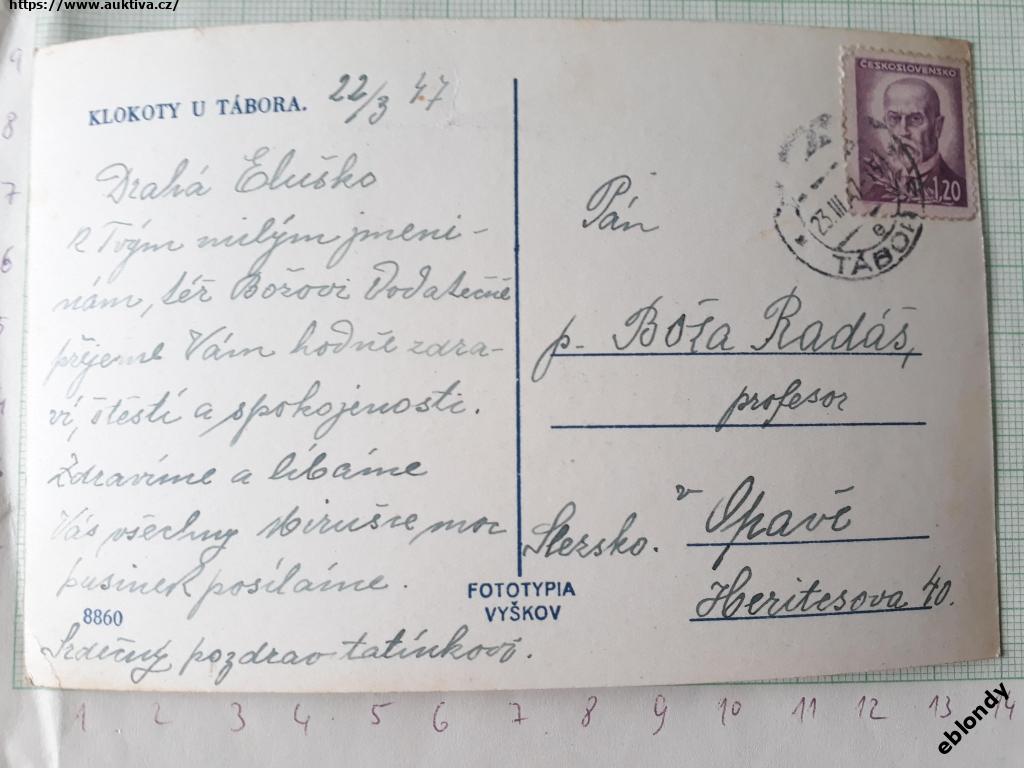 https://www.auktiva.cz/
KLOKOTY U TÁBORA. 22/3 47
Drahá Eluško
K Tvým milým jmeni-
nám, též Božovi Dodatečně
přejeme Vám hodně zdra-
ví, štěstí a spokojenosti.
Zdravíme a líbáme
Vás všechny Mirušce moc
pusinek posíláme.
8860
Srdečný pozdrav tatínkovi.
FOTOTYPIA
VYŠKOV
ČESKOSLOVENSKO
1,20
23.III.47
TÁBOR
Pán
p. Boža Radáš,
profesor
v Opavě
Slezsko.
Heritesova 40.
9
8
7
6
1 2 3 4 5 6 7 8 9 10 11 12 13 14
eblondy